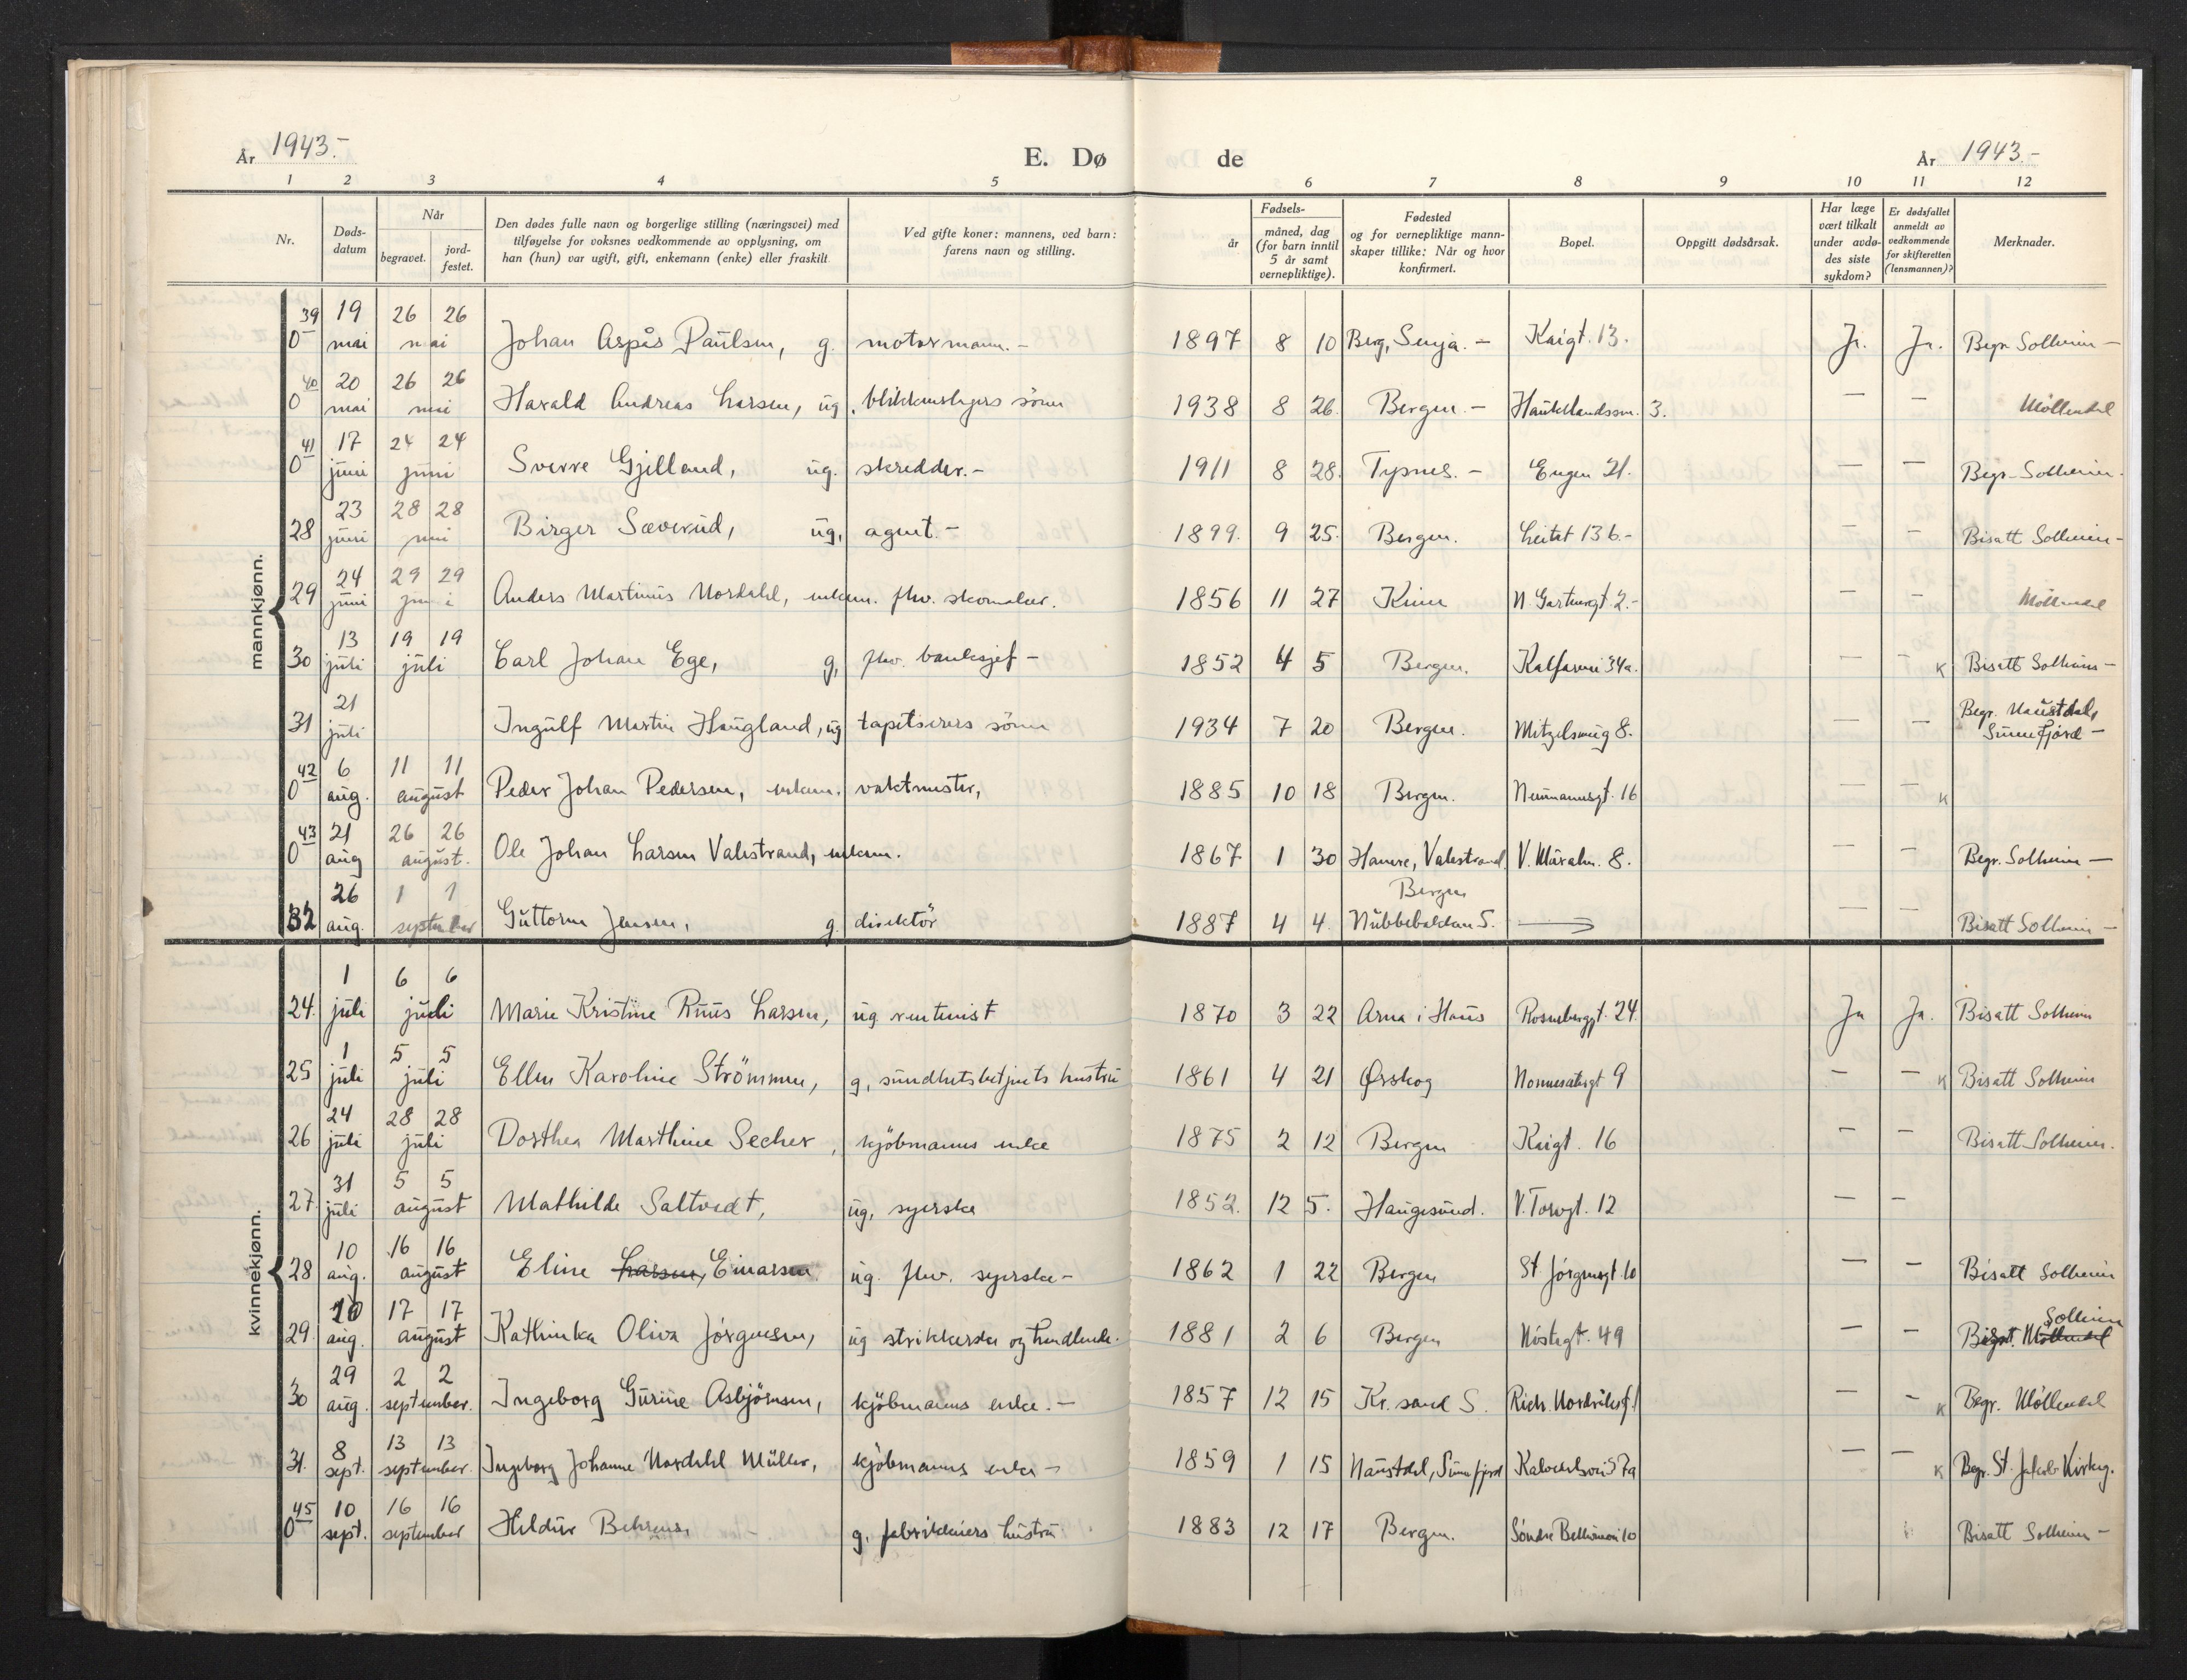 År 1943.-
E. Dø de
År 1943.-
1 2 3 4 5 6 7 8 9 10 11 12
Nr.
Døds-
datum
Når
begravet.
jord-
festet.
Den dødes fulle navn og borgerlige stilling (næringsvei) med
tilføyelse for voksnes vedkommende av opplysning, om
han (hun) var ugift, gift, enkemann (enke) eller fraskilt
Ved gifte koner: mannens, ved barn:
farens navn og stilling.
Fødsels-
år
måned, dag
(for barn inntil
5 år samt
vernepliktige).
Fødested
og for vernepliktige mann-
skaper tillike: Når og hvor
konfirmert.
Bopel.
Oppgitt dødsårsak.
Har læge
vært tilkalt
under avdø-
des siste
sykdom?
Er dødsfallet
anmeldt av
vedkommende
for skifteretten
(lensmannen)?
Merknader.
mannkjønn.
39 19 26 26
0 mai mai Johan Aspås Paulsen, g. motormann.- 1897 8 10 Berg, Senja.- Kaigt. 13. Ja. Ja. Begr. Solheim -
40 20 26 26
0 mai mai Harald Andreas Larsen, ug. blikkenslagers sönn 1938 8 26. Bergen.- Haukelandssvn. 3. — — Möllendal
41 17 24 24
0 juni juni Sverre Gjelland, ug. skredder.- 1911 8 28. Tysnes.- Engen 21. — — Begr. Solheim.
23 28 28
28 juni juni Birger Sæverud, ug, agent.- 1899. 9 25. Bergen. Leitet 13 b.- — — Bisatt Solheim-
24 29 29
29 juni juni Anders Martinus Nordahl, enkem. fhv. skomaker. 1856 11 27 Kinn N. Gartnergt. 2.- — — Möllendal
13 19 19
30 juli juli Carl Johan Ege, g, fhv. banksjef - 1852 4 5 Bergen. Kalfarvei 34a. — — K Bisatt Solheim -
21
31 juli Ingulf Martin Haugland, ug tapetserers sönn 1934 7 20 Bergen. Mitzelsmug 8. — — Begr. Naustdal,
Sunnfjord -
42 6 11 11
0 aug. august Peder Johan Pedersen, enkem. vaktmester, 1885 10 18 Bergen. Neumannsgt. 16 — — K
43 21 26 26
0 aug august. Ole Johan Larsen Valestrand, enkem. 1867 1 30 Hamre, Valestrand. V. Muralm. 8. — — Begr. Solheim —
26 1 1 Bergen
32 aug. september Guttorm Jensen, g direktör 1887 4 4. Nubbebakken 5. — — Bisatt Solheim -
kvinnekjønn.
1 6 6
24. juli juli Marie Kristine Ruus Larsen, ug rentenist 1870 3 22 Arna i Haus Rosenbergsgt. 24. Ja Ja. Bisatt Solheim
1 5 5
25 juli juli Ellen Karoline Strömmen, g, sundhetsbetjents hustru 1861 4 21 Ørskog Nonnesetergt 9 — — K Bisatt Solheim
24 28 28
26 juli juli Dorthea Marthine Secher, kjöbmanns enke 1875 2 12 Bergen Kaigt. 16 — — Bisatt Solheim.
31 5 5
27. juli august Mathilde Saltvedt, ug, syerske 1852. 12 5. Haugesund. V. Torvgt. 12 — —
10 16 16
28 aug. august Eline Larsen, Einarsen ug. fhv. syerske - 1862 1 22 Bergen St. Jörgensgt. 10 — — Bisatt Solheim
10 17 17 Solheim
29. aug. august Kathinka Oliva Jörgensen, ug strikkerske og handlende. 1881 2 6 Bergen Nöstegt. 49 — — Bisatt. Möllendal
29 2 2
30 aug. september. Ingeborg Gurine Asbjörnsen, kjöbmanns enke.- 1857 12 15 Kr. sand S. Rich. Nordråksgt. 1 — — K Begr. Möllendal
8 13 13
31. sept. september. Ingeborg Johanne Nordahl Müller, kjöbmanns enke - 1859 1 15 Naustdal, Sunnfjord Kalvedalsvei 57a — — K Begr. St. Jakobs Kirkeg.
45 10 16 16
0 sept. september Hildur Behrens. g. fabrikkeiers hustru 1883 12 17 Bergen. Söndre 10 Bisatt Solheim -